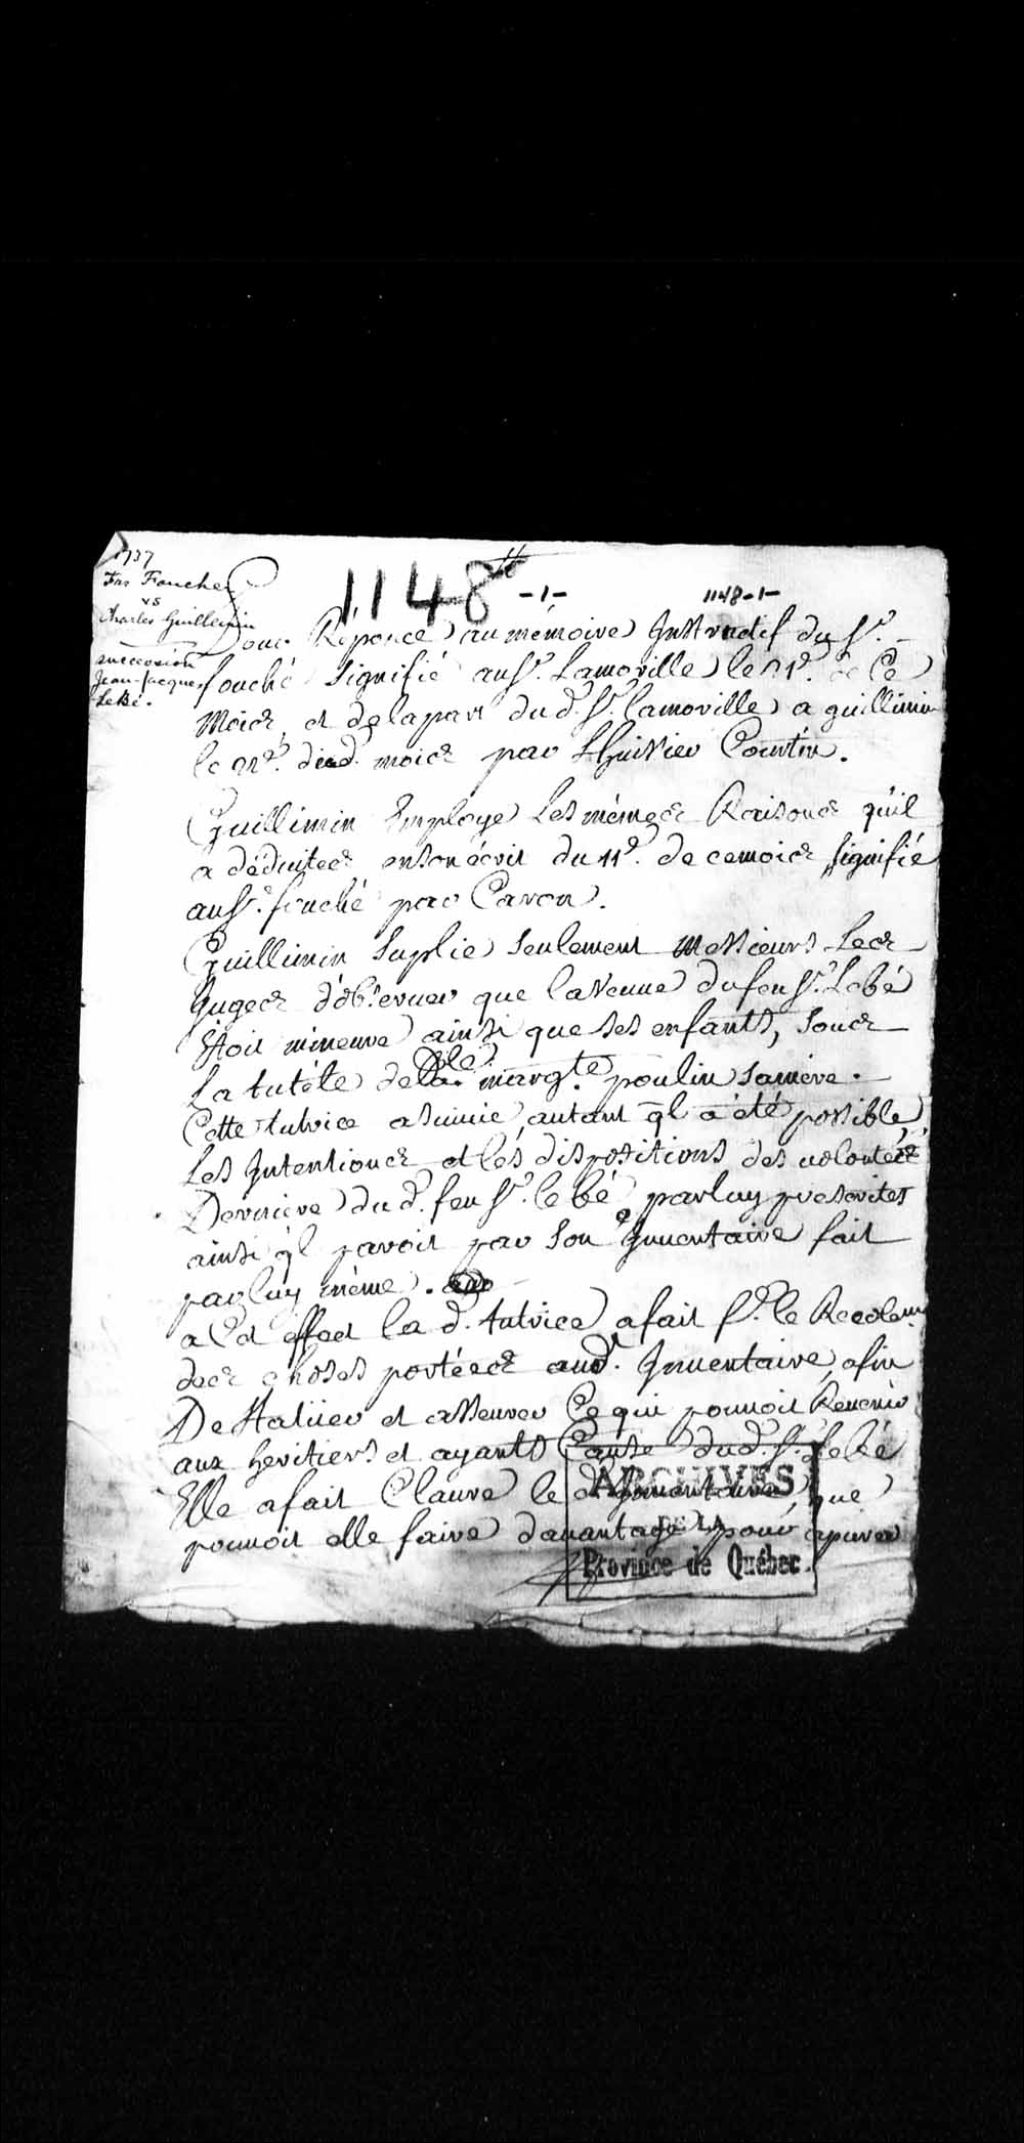 1737
Frs Foucher
vs
Charles Guillimin
succession
Jean-Jacques
Lebé.
1148 -1-
1148-1-
Pour Réponce au mémoire Instructif du Sr.
fouché signifié au Sr. Lamorille le 21e. de Ce
Mois, et de la part du d. Sr. lamorille a guillimin
le 22e. dud. mois par LHuissier Courtin.
Guillimin Employe les mêmes Raisons qu'il
a déduites en son écrit du 11e. de ce mois signifié
au Sr. fouché par Caron.
Guillimin Suplie seulement Messieurs Les
Juges d'observer que la Veuve du feu Sr. Lebé
Etoit mineure ainsi que ses enfants, sous
La tutéle de Dle. margte. poulin sa mére.
Cette tutrice a suivie, autant ql a été possible,
Les Intentions et les dispositions des volontés
Derniere du d. feu Sr. lebé par luy prescrites
ainsi ql paroit par son Inventaire fait
par luy même.
a Cet effect la d. tutrice a fait fe. le Recolemt
des choses portées aud. Inventaire, afin
De Statüer et asseurer Ce qui pouvoit Revenir
aux heritiers et ayants Cause dud. Sr. Lebé
Elle a fait Claure le d. Inventaire, que
pouvoit elle faire davantage pour apurer
ARCHIVES
DE LA
Province de Québec.